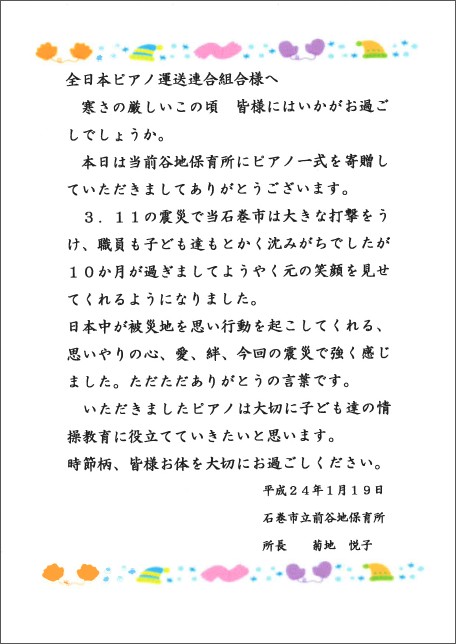 全日本ピアノ運送連合組合様へ
　寒さの厳しいこの頃　皆様にはいかがお過ご
しでしょうか。
　本日は当前谷地保育所にピアノ一式を寄贈し
ていただきましてありがとうございます。
　３．１１の震災で当石巻市は大きな打撃をう
け、職員も子ども達もとかく沈みがちでしたが
１０か月が過ぎましてようやく元の笑顔を見せ
てくれるようになりました。
日本中が被災地を思い行動を起こしてくれる、
思いやりの心、愛、絆、今回の震災で強く感じ
ました。ただただありがとうの言葉です。
　いただきましたピアノは大切に子ども達の情
操教育に役立てていきたいと思います。
時節柄、皆様お体を大切にお過ごしください。
平成２４年１月１９日
石巻市立前谷地保育所
所長　　菊地　悦子